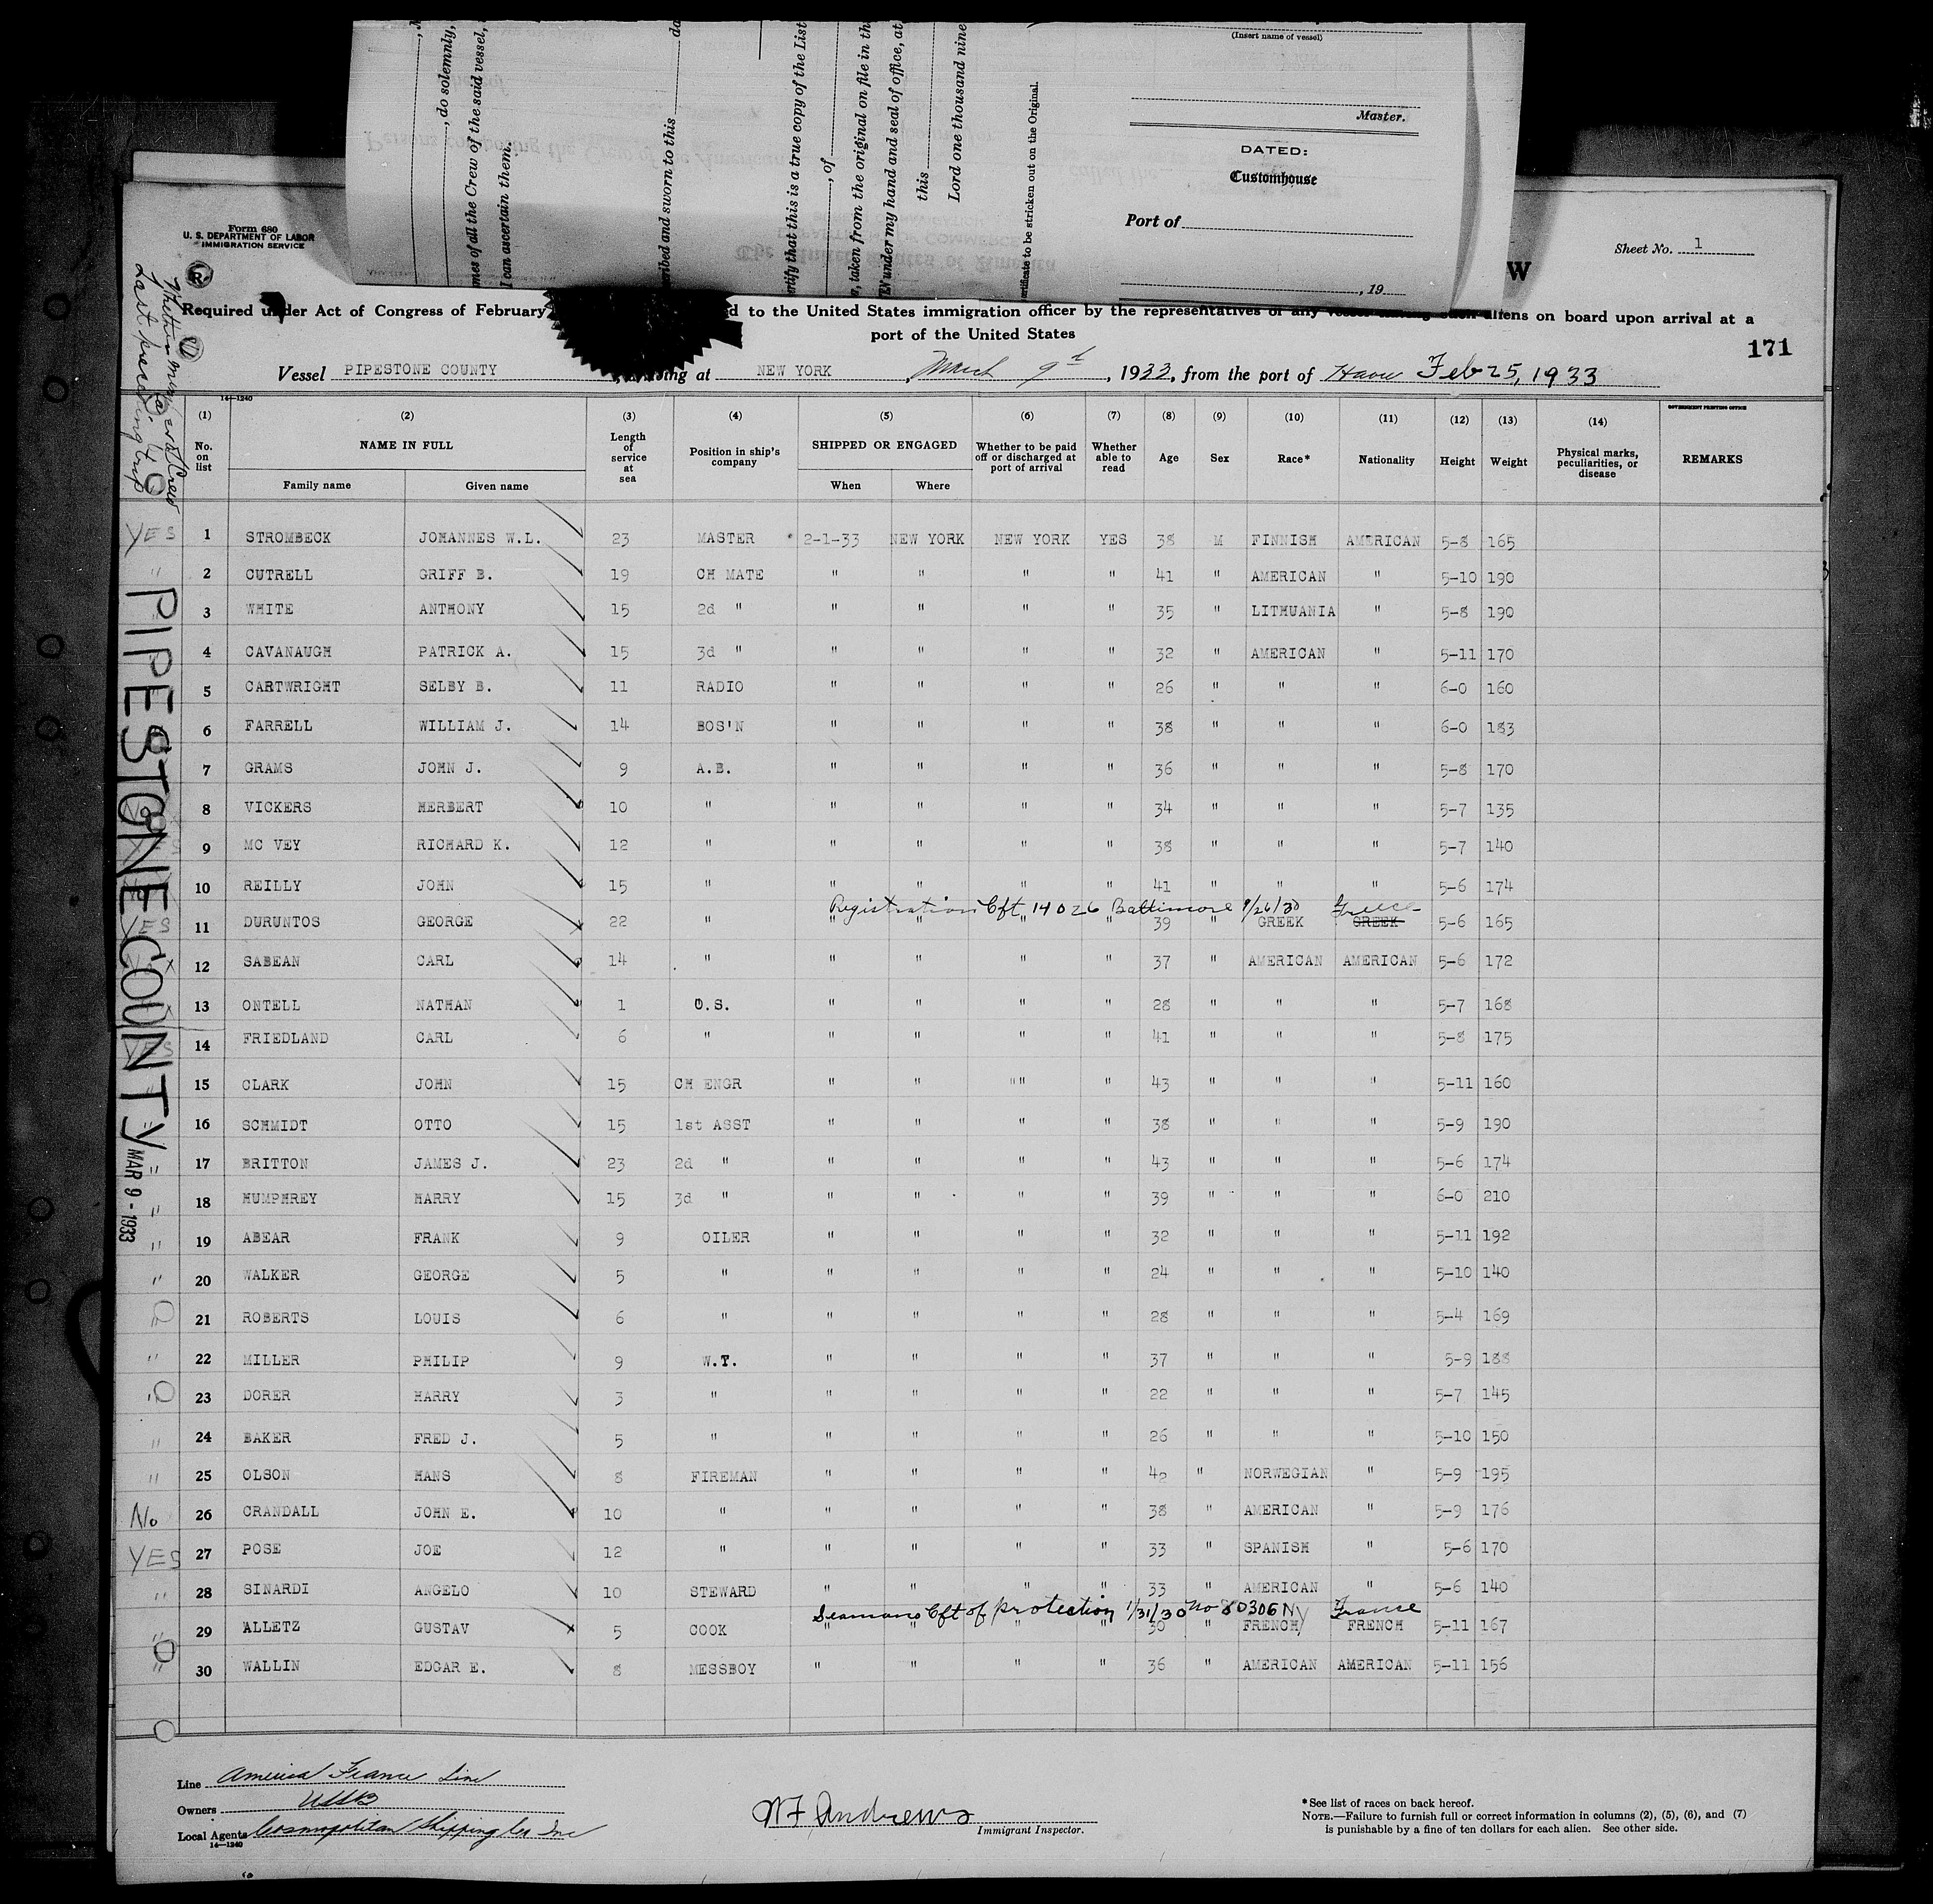 (Insert name of vessel)
Master.
DATED:
Customhouse
Port of
, 19
, do solemnly,
mes of all the Crew of the said vessel,
I can ascertain them.
ribed and sworn to this da
ertify that this is a true copy of the List
, of
, taken from the original on file in th
EN under my hand and seal of office, at
this
Lord one thousand nine
ertificate to be stricken out on the Original.
Form 680
U. S. DEPARTMENT OF LABOR
IMMIGRATION SERVICE
Sheet No. 1
W
Required under Act of Congress of February d to the United States immigration officer by the representatives of any vessel having such aliens on board upon arrival at a
port of the United States
171
Vessel PIPESTONE COUNTY , arriving at NEW YORK , March 9th , 1933, from the port of Havre Feb 25, 1933
Whether member of Crew
Last preceding trip
14—1240
GOVERNMENT PRINTING OFFICE
(1) (2) (3) (4) (5) (6) (7) (8) (9) (10) (11) (12) (13) (14)
No. on list NAME IN FULL Family name Given name Length of service at sea Position in ship's company SHIPPED OR ENGAGED When Where Whether to be paid off or discharged at port of arrival Whether able to read Age Sex Race* Nationality Height Weight Physical marks, peculiarities, or disease REMARKS
YES 1 STROMBECK JOHANNES W.L. 23 MASTER 2-1-33 NEW YORK NEW YORK YES 38 M FINNISH AMERICAN 5-8 165
" 2 CUTRELL GRIFF B. 19 CH MATE " " " " 41 " AMERICAN " 5-10 190
3 WHITE ANTHONY 15 2d " " " " " 35 " LITHUANIA " 5-8 190
4 CAVANAUGH PATRICK A. 15 3d " " " " " 32 " AMERICAN " 5-11 170
5 CARTWRIGHT SELBY B. 11 RADIO " " " " 26 " " " 6-0 160
6 FARRELL WILLIAM J. 14 BOS'N " " " " 38 " " " 6-0 183
7 GRAMS JOHN J. 9 A.B. " " " " 36 " " " 5-8 170
8 VICKERS HERBERT 10 " " " " " 34 " " " 5-7 135
9 MC VEY RICHARD K. 12 " " " " " 38 " " " 5-7 140
10 REILLY JOHN 15 " " " " " 41 " " " 5-6 174
Registration Cft 14026 Baltimore 9/26/30 Greece
YES 11 DURUNTOS GEORGE 22 " " " " " 39 " GREEK GREEK 5-6 165
No x 12 SABEAN CARL 14 " " " " " 37 " AMERICAN AMERICAN 5-6 172
13 ONTELL NATHAN 1 O.S. " " " " 28 " " " 5-7 168
YES 14 FRIEDLAND CARL 6 " " " " " 41 " " " 5-8 175
15 CLARK JOHN 15 CH ENGR " " "" " 43 " " " 5-11 160
16 SCHMIDT OTTO 15 1st ASST " " " " 38 " " " 5-9 190
17 BRITTON JAMES J. 23 2d " " " " " 43 " " " 5-6 174
" 18 HUMPHREY HARRY 15 3d " " " " " 39 " " " 6-0 210
" 19 ABEAR FRANK 9 OILER " " " " 32 " " " 5-11 192
" 20 WALKER GEORGE 5 " " " " " 24 " " " 5-10 140
" 21 ROBERTS LOUIS 6 " " " " " 28 " " " 5-4 169
" 22 MILLER PHILIP 9 W.T. " " " " 37 " " " 5-9 188
" 23 DORER HARRY 3 " " " " " 22 " " " 5-7 145
" 24 BAKER FRED J. 5 " " " " " 26 " " " 5-10 150
" 25 OLSON HANS 8 FIREMAN " " " " 42 " NORWEGIAN " 5-9 195
No 26 CRANDALL JOHN E. 10 " " " " " 38 " AMERICAN " 5-9 176
YES 27 POSE JOE 12 " " " " " 33 " SPANISH " 5-6 170
" 28 SINARDI ANGELO 10 STEWARD " " " " 33 " AMERICAN " 5-6 140
Seamans Cft of protection 1/31/30 No 80306 NY France
" 29 ALLETZ GUSTAV 5 COOK " " " " 30 " FRENCH FRENCH 5-11 167
" 30 WALLIN EDGAR E. 8 MESSBOY " " " " 36 " AMERICAN AMERICAN 5-11 156
PIPESTONE COUNTY
MAR 9 - 1933
Line America France Line
Owners USSB
Local Agents Cosmopolitan Shipping Co Inc
14—1240
W F Andrews
Immigrant Inspector.
*See list of races on back hereof.
NOTE.—Failure to furnish full or correct information in columns (2), (5), (6), and (7)
is punishable by a fine of ten dollars for each alien. See other side.